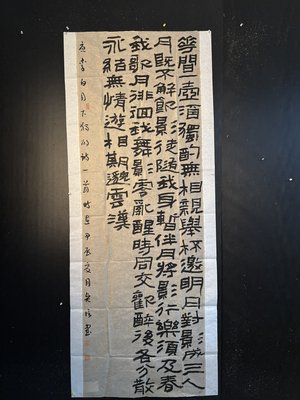 花間一壺酒獨酌無相親舉杯邀明月對影成三人
月既不解飲影徒隨我身暫伴月將影行樂須及春
我歌月徘徊我舞影零亂醒時同交歡醉後各分散
永結無情遊相期邈雲漢
李白月下獨酌詩一首時在甲辰夏月書